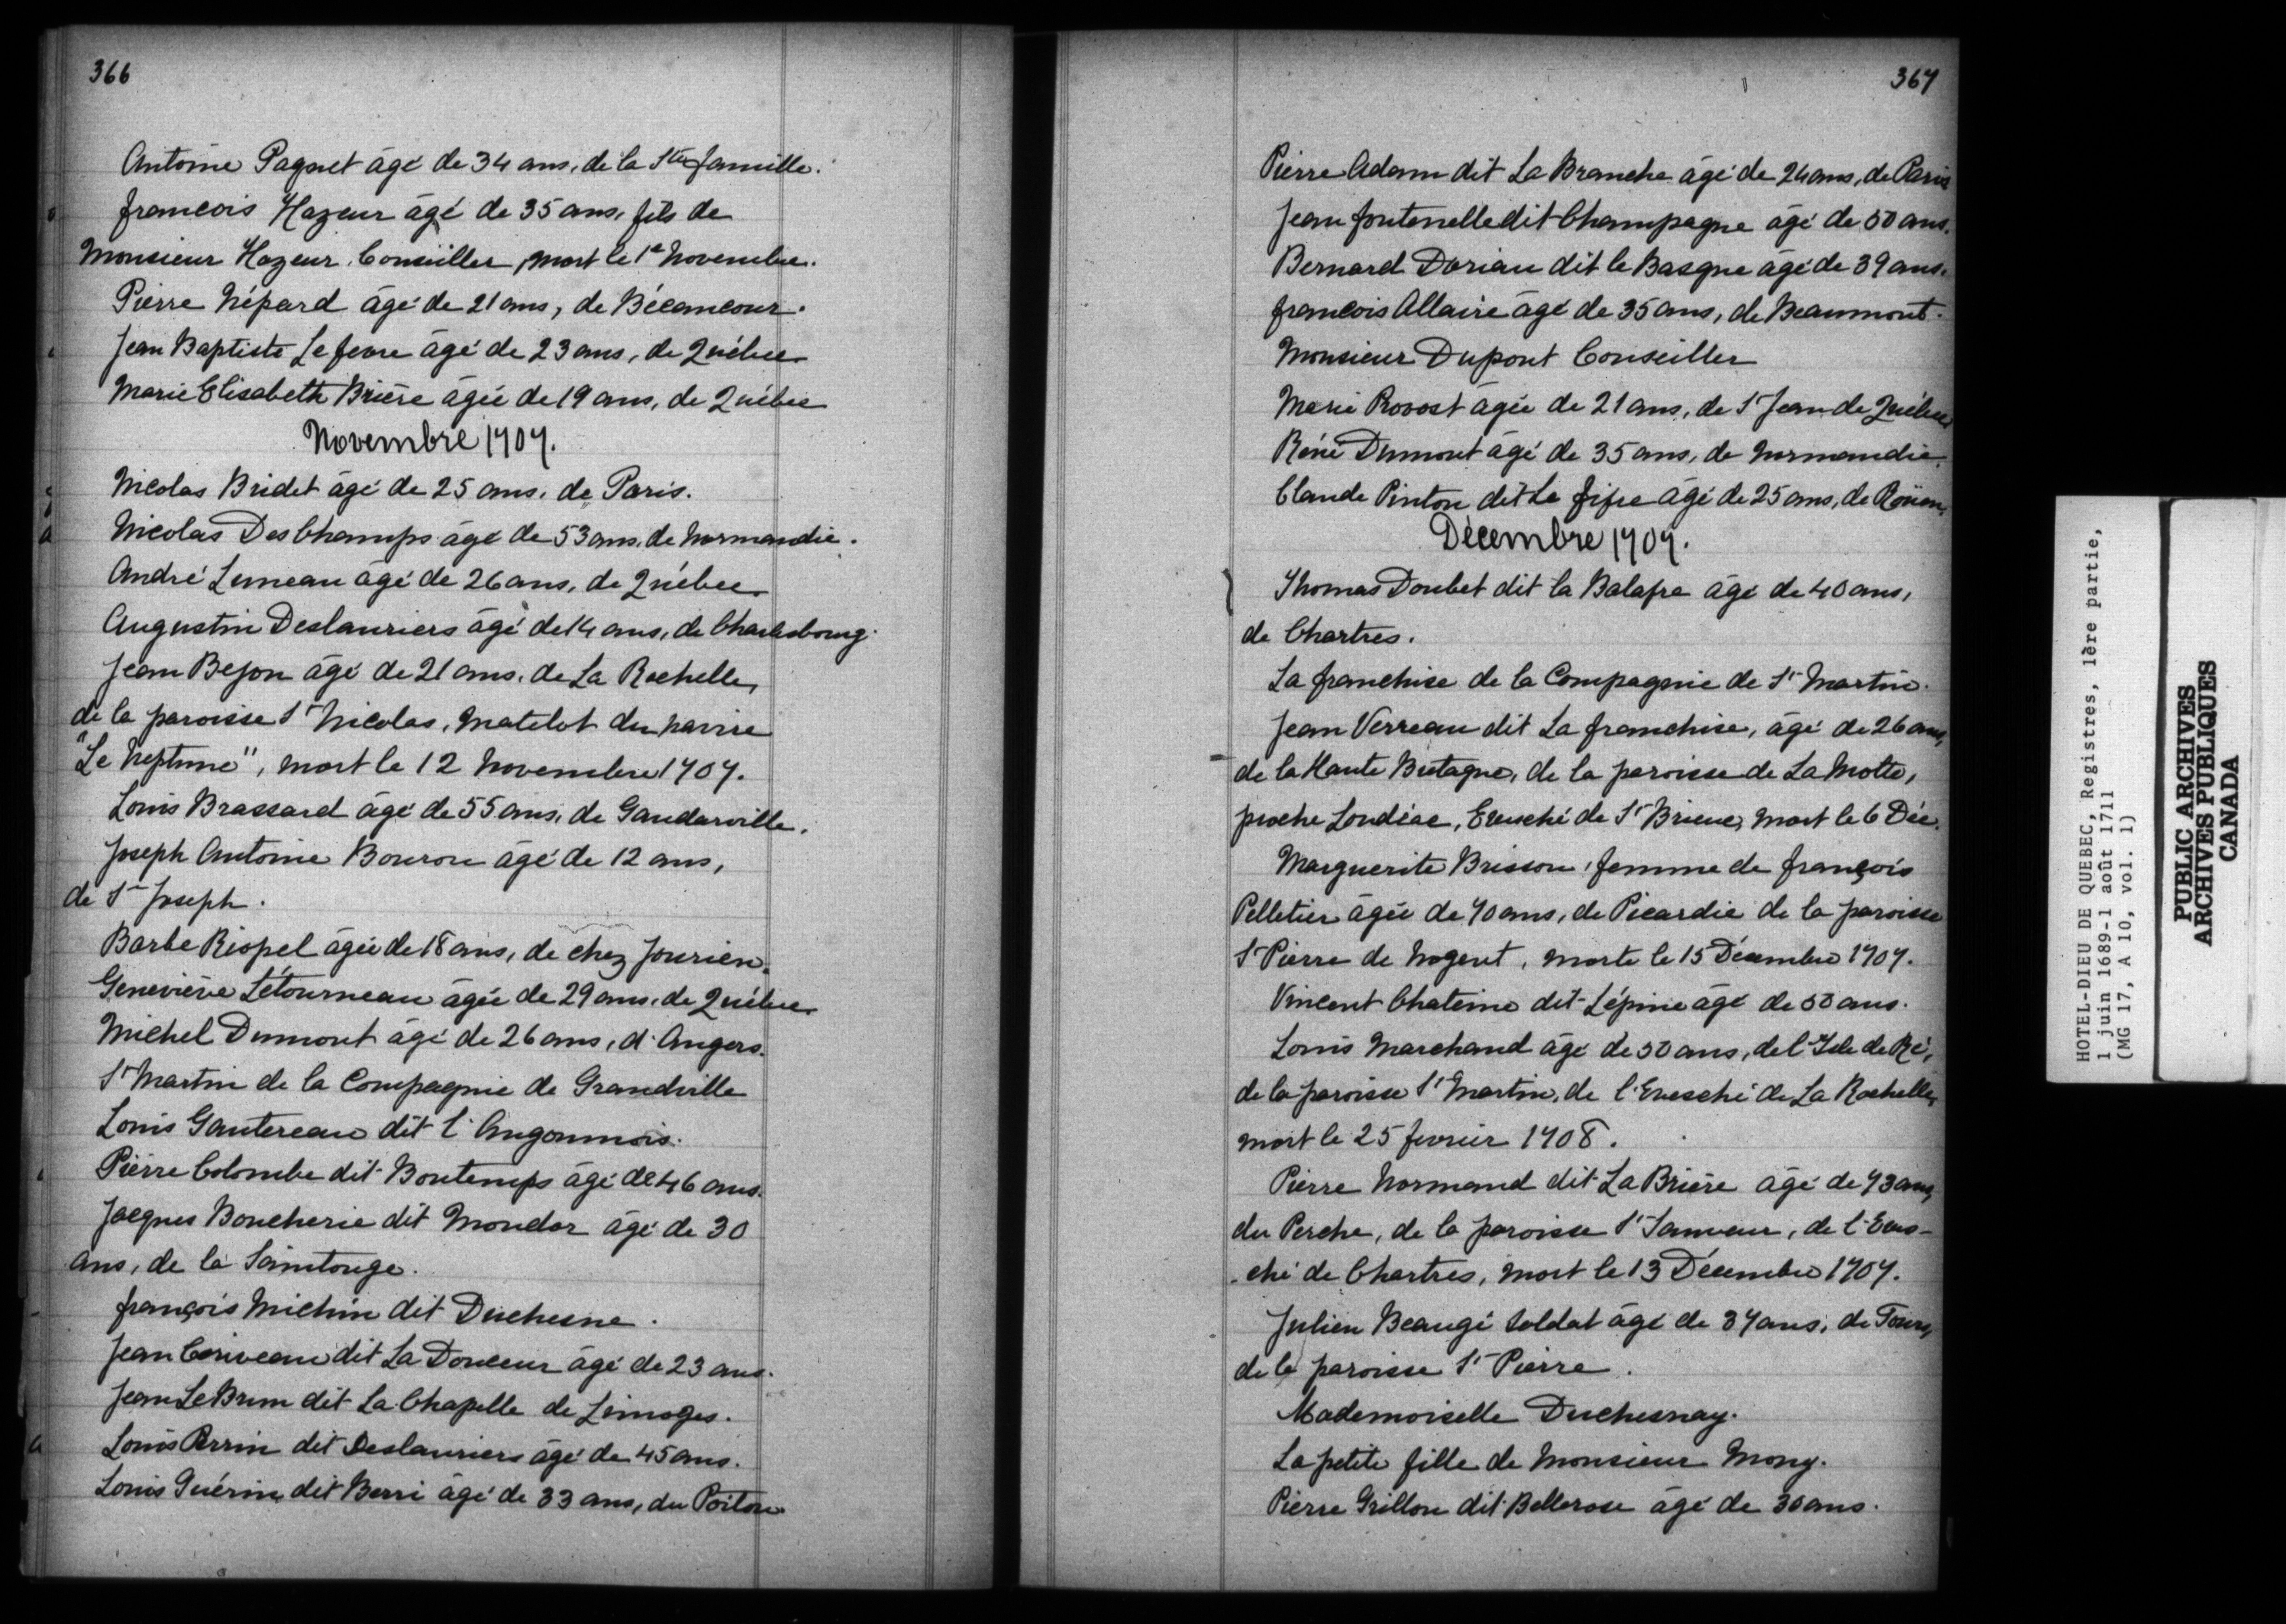 366
Antoine Paquet âgé de 34 ans, de la Ste famille.
francois Hazeur âgé de 35 ans, fils de
Monsieur Hazeur Conseiller, mort le 1e Novembre.
Pierre Népard âgé de 21 ans, de Bécancour.
Jean Baptiste Le febvre âgé de 23 ans, de Québec
Marie Elisabeth Brière âgée de 19 ans, de Québec
Novembre 1707.
Nicolas Bridet âgé de 25 ans, de Paris.
Nicolas Des Champs âgé de 53 ans, de Normandie.
André Luneau âgé de 26 ans, de Québec.
Augustin Deslauriers âgé de 14 ans, de Charlesbourg.
Jean Bejon âgé de 21 ans, de La Rochelle,
de la paroisse St Nicolas, matelot du navire
"Le Neptune", mort le 12 Novembre 1707.
Louis Brassard âgé de 55 ans, de Gaudarville.
Joseph Antoine Bouron âgé de 12 ans,
de St Joseph.
Barbe Riopel âgée de 18 ans, de chez Jourien.
Geneviève Létourneau âgée de 29 ans, de Québec.
Michel Dumont âgé de 26 ans, d'Angers.
St Martin de la Compagnie de Grandville
Louis Gautereau dit l'Angoumois.
Pierre Colombe dit Bontemps âgé de 46 ans.
Jacques Boucherie dit Mondor âgé de 30
ans, de la Saintonge.
françois Michin dit Duchesne.
Jean Coriveau dit La Douceur âgé de 23 ans.
Jean Le Brun dit La Chapelle de Limoges.
Louis Perrin dit Deslauriers âgé de 45 ans.
Louis Guérin dit Berri âgé de 33 ans, du Poitou
367
Pierre Adam dit La Branche âgé de 24 ans, de Paris
Jean fontenelle dit Champagne âgé de 50 ans.
Bernard Dorian dit le Basque âgé de 39 ans.
francois Allaire âgé de 35 ans, de Beaumont.
Monsieur Dupont Conseiller
Marie Provost âgée de 21 ans, de St Jean de Québec
Réné Dumont âgé de 35 ans, de Normandie.
Claude Pinton dit Le fifre âgé de 25 ans, de Roüen.
Décembre 1707.
Thomas Doubet dit la Balafre âgé de 40 ans,
de Chartres.
La franchise de la Compagnie de St Martin.
Jean Verreau dit La franchise, âgé de 26 ans,
de la Haute Bretagne, de la paroisse de La Motte,
proche Loudéac, Evesché de St Brieuc, mort le 6 Déc.
Marguerite Brisson, femme de françois
Pelletier âgée de 70 ans, de Picardie de la paroisse
St Pierre de Nogent, morte le 15 Décembre 1707.
Vincent Chateino dit Lépine âgé de 50 ans.
Louis Marchand âgé de 50 ans, de l'Isle de Ré,
de la paroisse St Martin, de l'Evesché de La Rochelle,
mort le 25 fevrier 1708.
Pierre Normand dit La Brière âgé de 73 ans,
du Perche, de la paroisse St Sauveur, de l'Eves-
-ché de Chartres, mort le 13 Décembre 1707.
Julien Beaugé soldat âgé de 37 ans, de Tours,
de la paroisse St Pierre.
Mademoiselle Duchesnay.
La petite fille de Monsieur Mony.
Pierre Grillon dit Bellerose âgé de 30 ans.
HOTEL-DIEU DE QUEBEC, Registres, 1ère partie,
1 juin 1689-1 août 1711
(MG 17, A 10, vol. 1)
PUBLIC ARCHIVES
ARCHIVES PUBLIQUES
CANADA